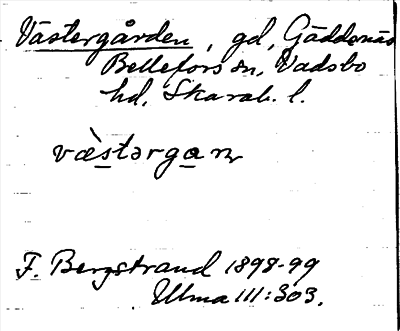 Västergården, gd, Gäddenäs
Bellefors sn, Vadsbo
hd, Skarab. l.
væ̀stərgan
F. Bergstrand 1898-99
Ulma 111:303.